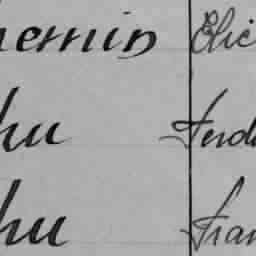 hemin Elie
hu Ferd
hu Fran